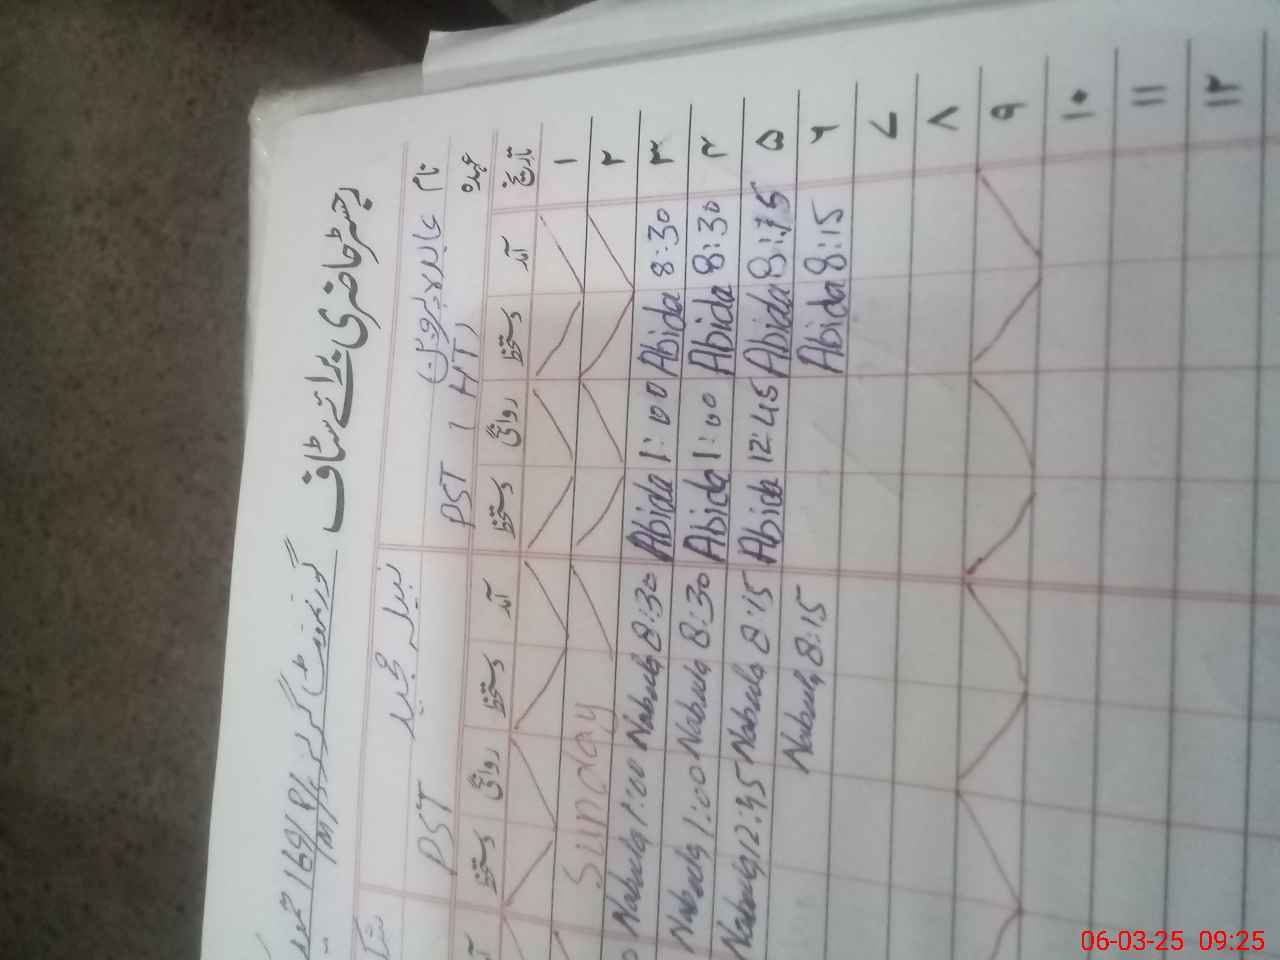 رجسٹر حاضری برائے سٹاف
گورنمنٹ گرلز P/S 169 M/
نام عابدہ پروین نبیلہ مجید
عہدہ PST (HT) PST
تاریخ آمد دستخط روانگی دستخط آمد دستخط روانگی دستخط
۱
۲ Sunday
۳ 8:30 Abida 1:00 Abida 8:30 Nabeela 1:00 Nabeela
۴ 8:30 Abida 1:00 Abida 8:30 Nabeela 1:00 Nabeela
۵ 8:15 Abida 12:45 Abida 8:15 Nabeela 12:45 Nabeela
۶ 8:15 Abida 8:15 Nabeela
۷
۸
۹
۱۰
۱۱
۱۲
06-03-25 09:25